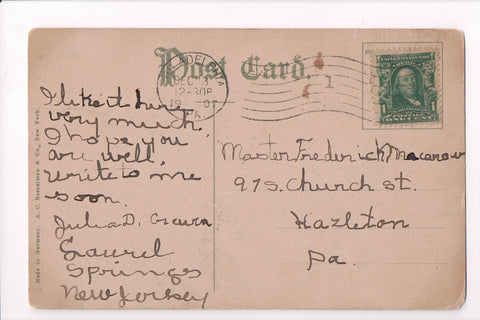 Post Card.
PHILADELPHIA
DEC 3
12-30P
1907
PA
1
UNITED STATES
ONE CENT
I like it here
very much.
I hope you
are well,
write to me
soon.
Julia D.
Laurel
Springs
New Jersey
Master Frederick
97 S. Church st.
Hazleton
Pa.
Made in Germany. A. C. Bosselman & Co., New York.